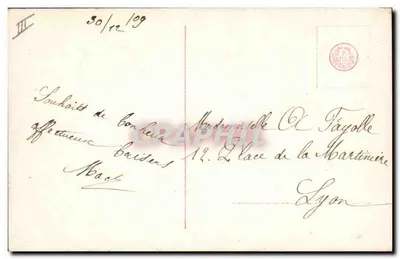 III
30/12/09
Souhaits de bonheur
affectueux baisers
Mademoiselle Fayolle
12. Place de la Martinière
Lyon